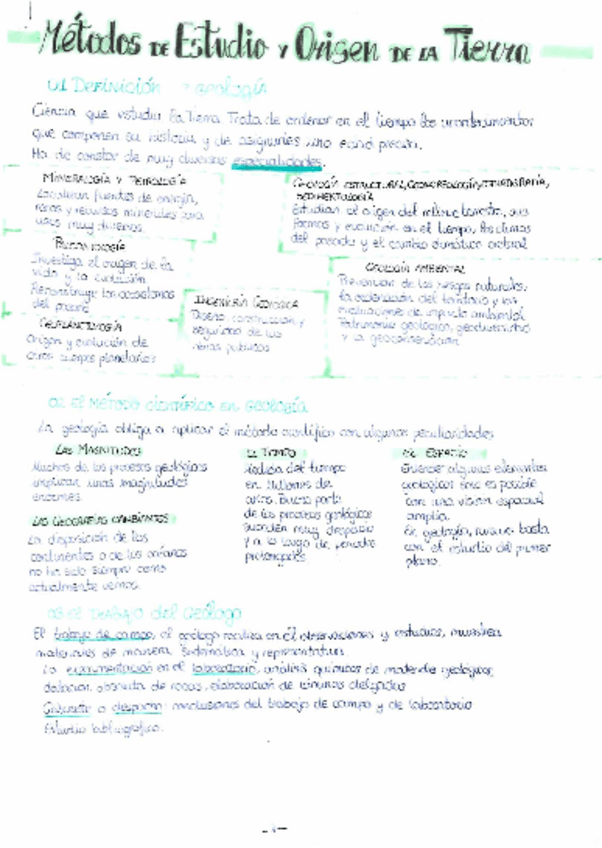 Métodos de Estudio y Origen de la Tierra
01 Definición geología
Ciencia que estudia la Tierra. Trata de ordenar en el tiempo los
que componen su historia y de asignarles una edad precisa.
Ha de constar de muy diversas especialidades.
Mineralogía y Petrología
Localizan fuentes de energía,
rocas y recursos minerales para
usos muy diversos.
Paleontología
Investiga el origen de la
vida y la evolución
Reconstruye los ecosistemas
del pasado
Geoplanetología
Origen y evolución de
otros cuerpos planetarios
Ingeniería Geológica
Diseño, construcción y
seguridad de las
obras públicas
Geología estructural, geomorfología, estratigrafía,
sedimentología
Estudian el origen del relieve terrestre, sus
formas y evolución en el tiempo, los climas
del pasado y el cambio climático actual
Geología Ambiental
Prevención de los riesgos naturales,
la ordenación del territorio y las
evaluaciones de impacto ambiental.
Patrimonio geológico, geodiversidad
y la geoconservación
02 El Método científico en Geología
La geología obliga a aplicar el método científico con algunas peculiaridades
Las Magnitudes
Muchos de los procesos geológicos
implican unas magnitudes
enormes.
Las Geografías Cambiantes
La disposición de los
continentes o de los océanos
no ha sido siempre como
actualmente vemos.
El Tiempo
Medida del tiempo
en Millones de
años. Buena parte
de los procesos geológicos
suceden muy despacio
y a lo largo de periodos
prolongados
El Espacio
Entender algunos elementos
geológicos solo es posible
con una visión espacial
amplia.
En geología, nunca basta
con el estudio del primer
plano.
03 El trabajo del Geólogo
El trabajo de campo, el geólogo realiza en él observaciones y estudios, muestrea
materiales de manera sistemática y representativa
La experimentación en el laboratorio, análisis químicos de materiales geológicos,
datación absoluta de rocas, elaboración de láminas delgadas
Gabinete o despacho: conclusiones del trabajo de campo y de laboratorio
Estudio bibliográfico.